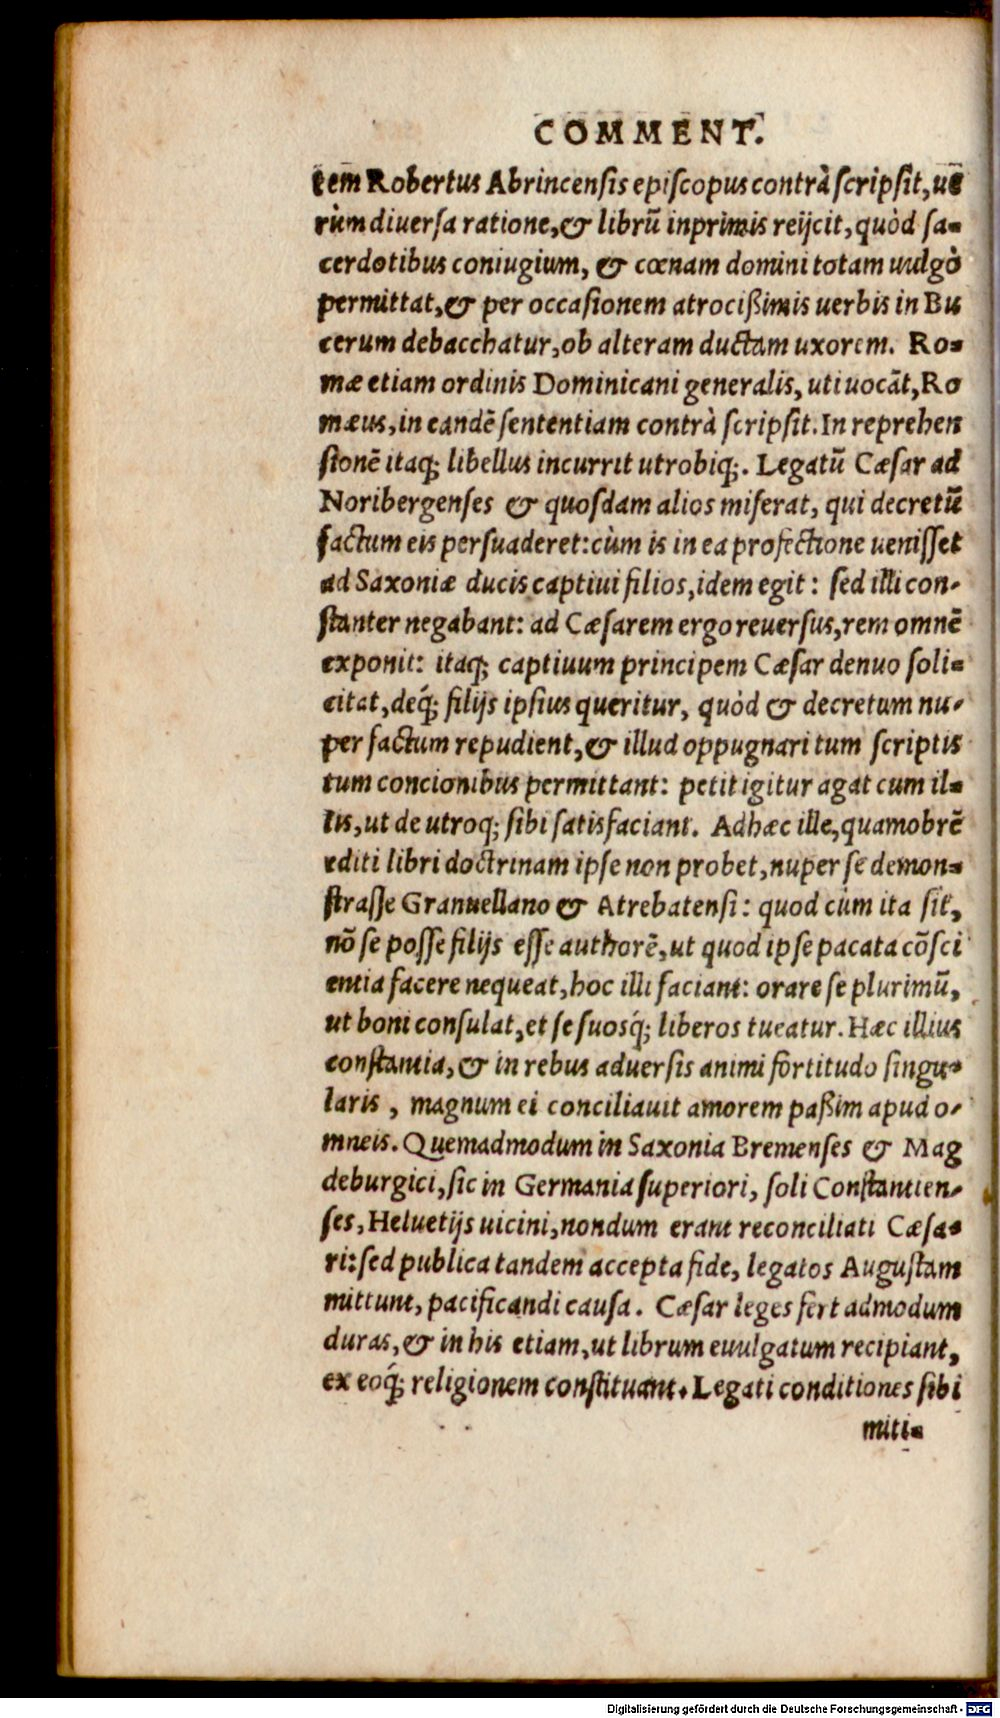 COMMENT.
tem Robertus Abrincensis episcopus contrà scripsit, ue
rùm diuersa ratione, & librū inprimis reijcit, quòd sa-
cerdotibus coniugium, & cœnam domini totam uulgò
permittat, & per occasionem atrocißimis uerbis in Bu
cerum debacchatur, ob alteram ductam uxorem. Ro-
mæ etiam ordinis Dominicani generalis, uti uocāt, Ro
mæus, in eandē sententiam contrà scripsit. In reprehen
sionē itaq; libellus incurrit utrobiq;. Legatū Cæsar ad
Noribergenses & quosdam alios miserat, qui decretū
factum eis persuaderet: cùm is in ea profectione uenisset
ad Saxoniæ ducis captiui filios, idem egit: sed illi con-
stanter negabant: ad Cæsarem ergo reuersus, rem omnē
exponit: itaq; captiuum principem Cæsar denuo soli-
citat, deq́; filijs ipsius queritur, quòd & decretum nu-
per factum repudient, & illud oppugnari tum scriptis
tum concionibus permittant: petit igitur agat cum il-
lis, ut de utroq; sibi satisfaciant. Ad hæc ille, quamobrē
editi libri doctrinam ipse non probet, nuper se demon-
strasse Granuellano & Atrebatensi: quod cùm ita sit,
nō se posse filijs esse authorē, ut quod ipse pacata cōsci
entia facere nequeat, hoc illi faciant: orare se plurimū,
ut boni consulat, et se suosq́; liberos tueatur. Hæc illius
constantia, & in rebus aduersis animi fortitudo singu-
laris, magnum ei conciliauit amorem paßim apud o-
mneis. Quemadmodum in Saxonia Bremenses & Mag
deburgici, sic in Germania superiori, soli Constantien-
ses, Heluetijs uicini, nondum erant reconciliati Cæsa-
ri: sed publica tandem accepta fide, legatos Augustam
mittunt, pacificandi causa. Cæsar leges fert admodum
duras, & in his etiam, ut librum euulgatum recipiant,
ex eoq́; religionem constituant. Legati conditiones sibi
miti-
Digitalisierung gefördert durch die Deutsche Forschungsgemeinschaft - DFG